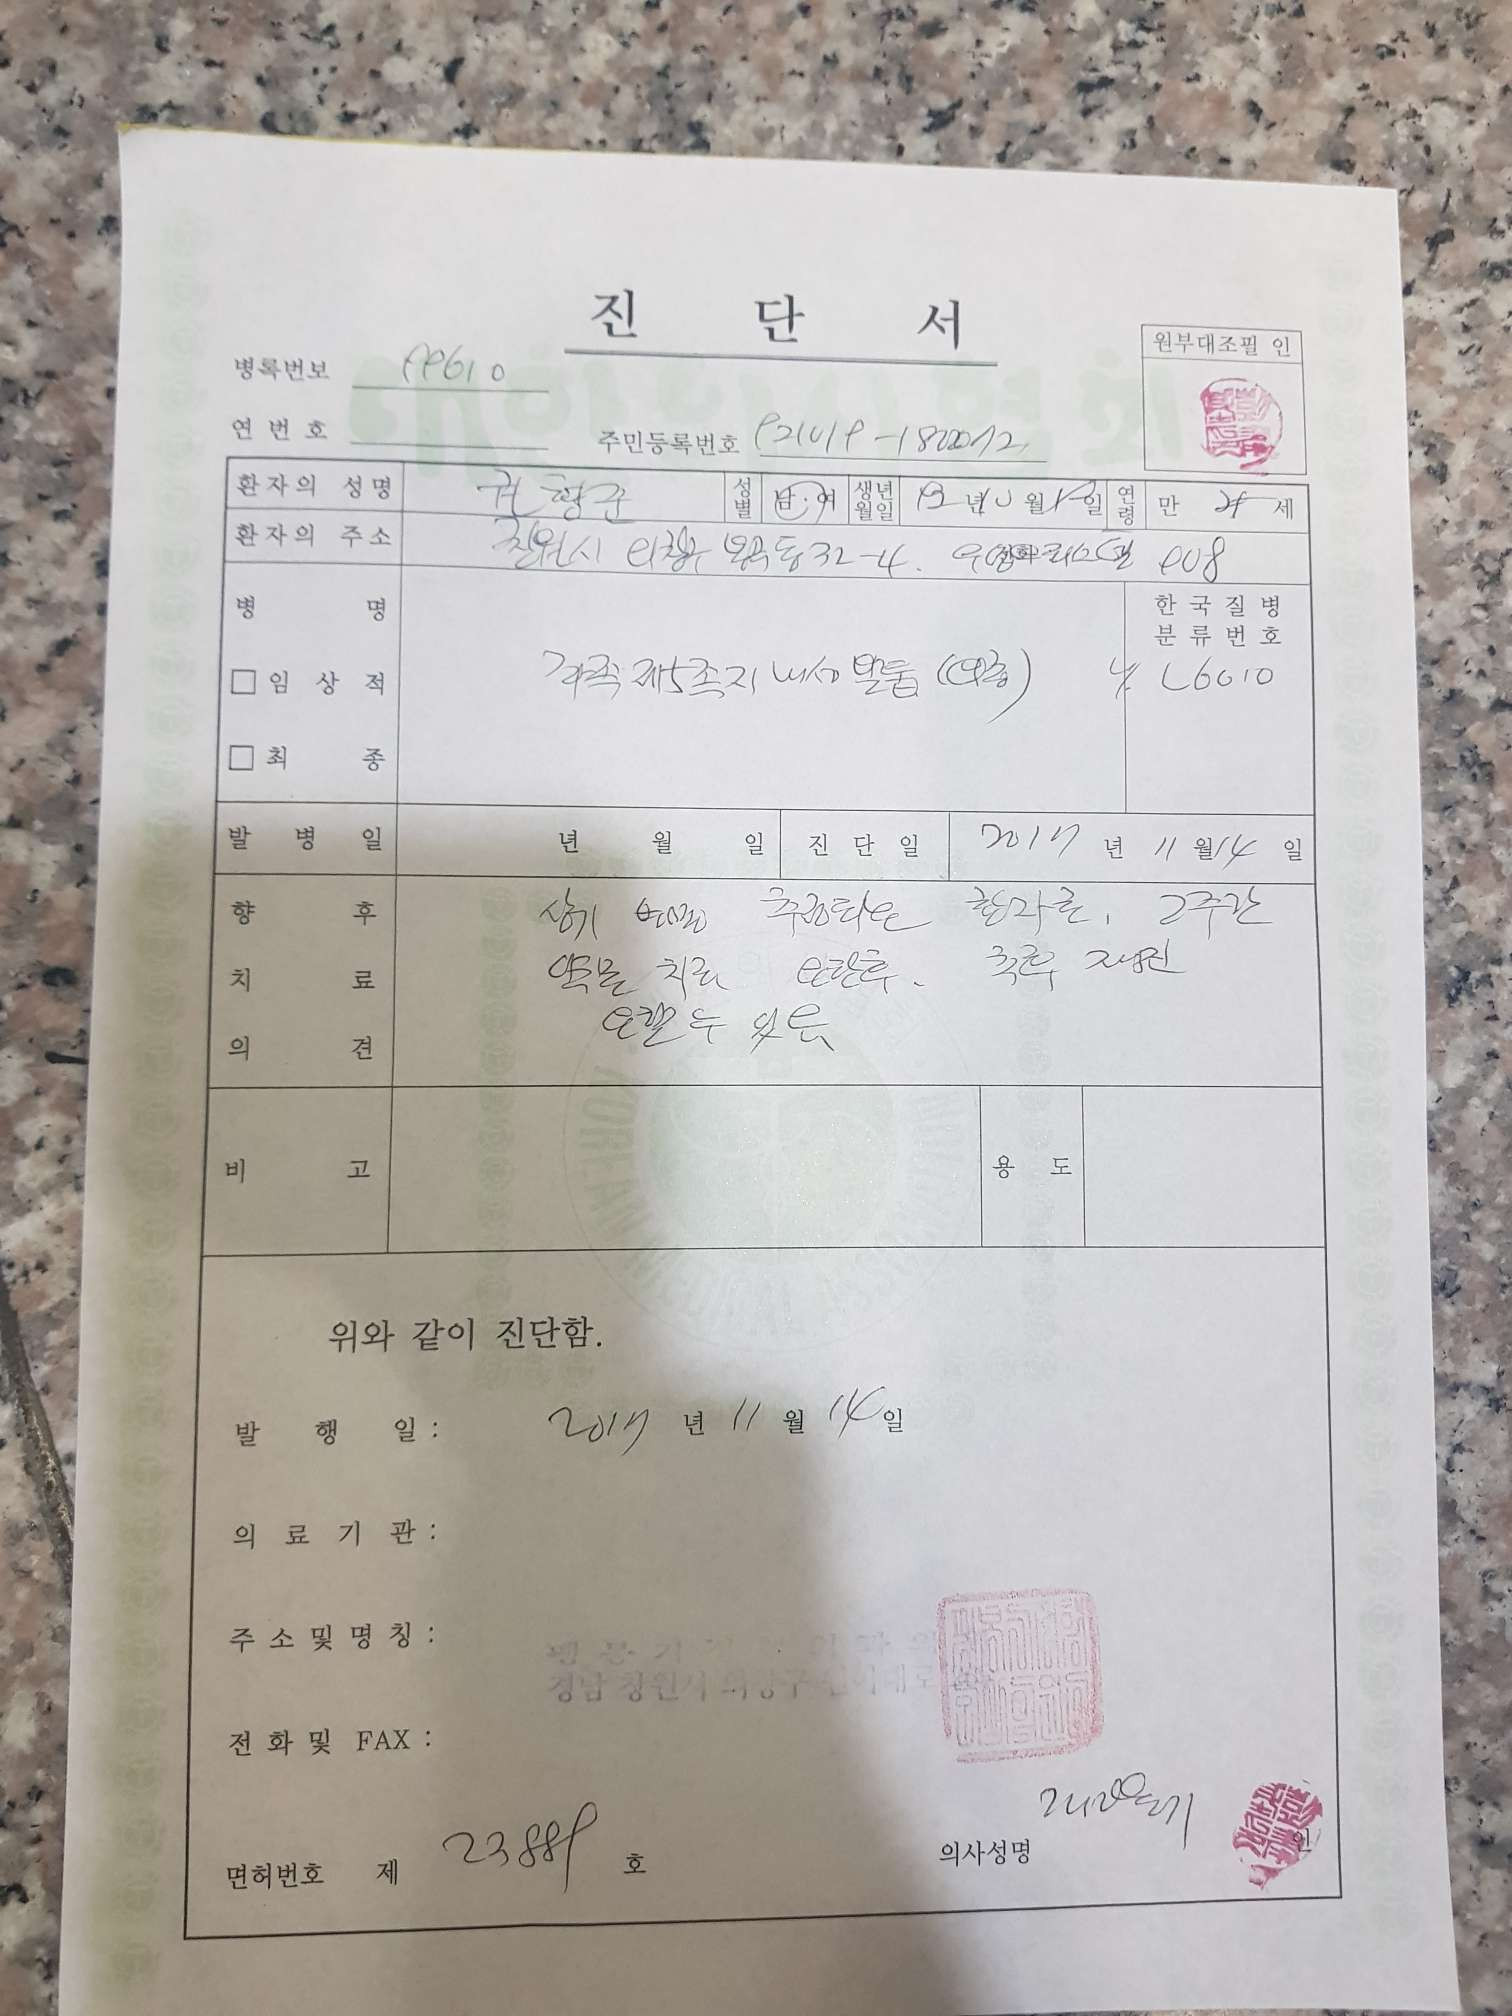 진 단 서
원부대조필 인
병록번보
연 번 호
주민등록번호
환자의 성명 성별 남·여 생년월일 년 월 일 연령 만 세
환자의 주소 창원시 의창구 봉곡동 32-4. 908
병 명
한국질병
분류번호
□ 임 상 적 좌족 제5족지 내성 발톱 (염증) L6010
□ 최 종
발 병 일 년 월 일 진 단 일 2017 년 11 월 14 일
향 후 상기 병명 추정되는 환자로, 2주간
치 료 약물 치료 요한후. 추후 재진
의 견 요할 수 있음
비 고 용 도
위와 같이 진단함.
발 행 일 : 2017 년 11 월 14 일
의 료 기 관 :
주 소 및 명 칭 :
경남 창원시 의창구
전 화 및 FAX :
면허번호 제 23889 호
의사성명 인